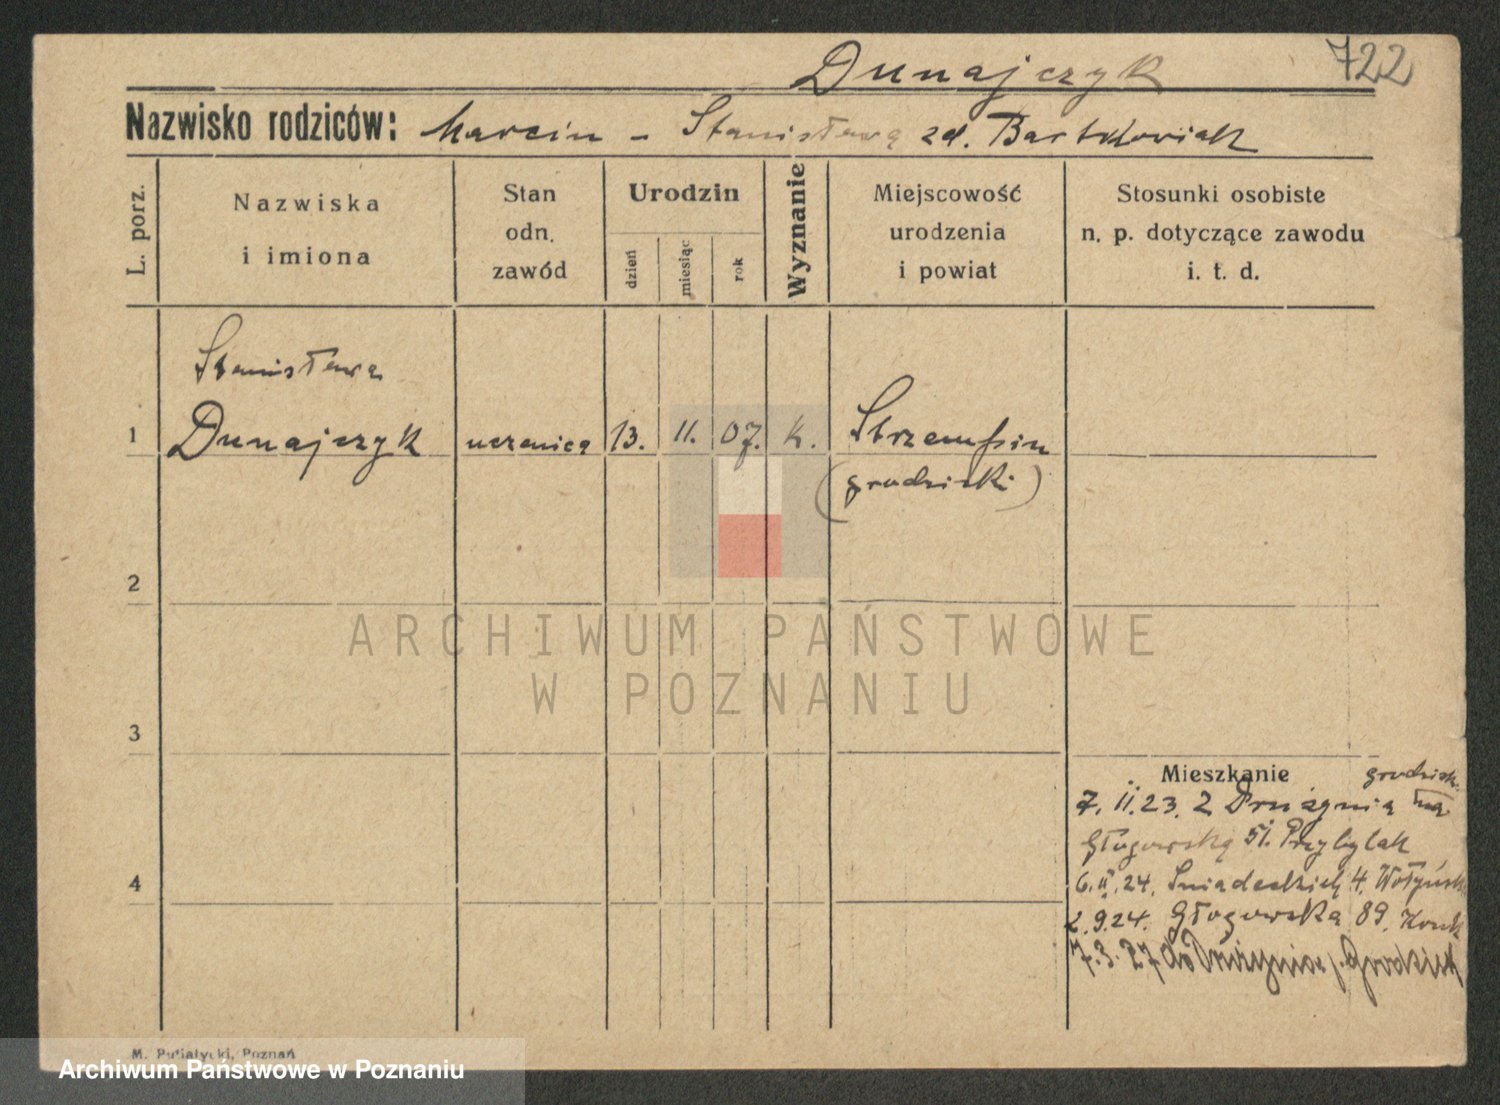 Dunajczyk 722
Nazwisko rodziców: Marcin - Stanisława zd. Bartkowiak
L. porz.
Nazwiska
i imiona
Stan
odn.
zawód
Urodzin
dzień
miesiąc
rok
Wyznanie
Miejscowość
urodzenia
i powiat
Stosunki osobiste
n. p. dotyczące zawodu
i. t. d.
Stanisława
1 Dunajczyk uczenica 13. 11. 07. k.
(grodziski)
2
3
4
Mieszkanie
7. II. 23. z Drużynia
Głogowską 51. Przybylak
6. II. 24. Śniadeckich 4.
2.9.24. Głogowska 89.
7.3.27 do Drużynia p. Grodzisk
ARCHIWUM PAŃSTWOWE
W POZNANIU
M. Putiatycki, Poznań
Archiwum Państwowe w Poznaniu